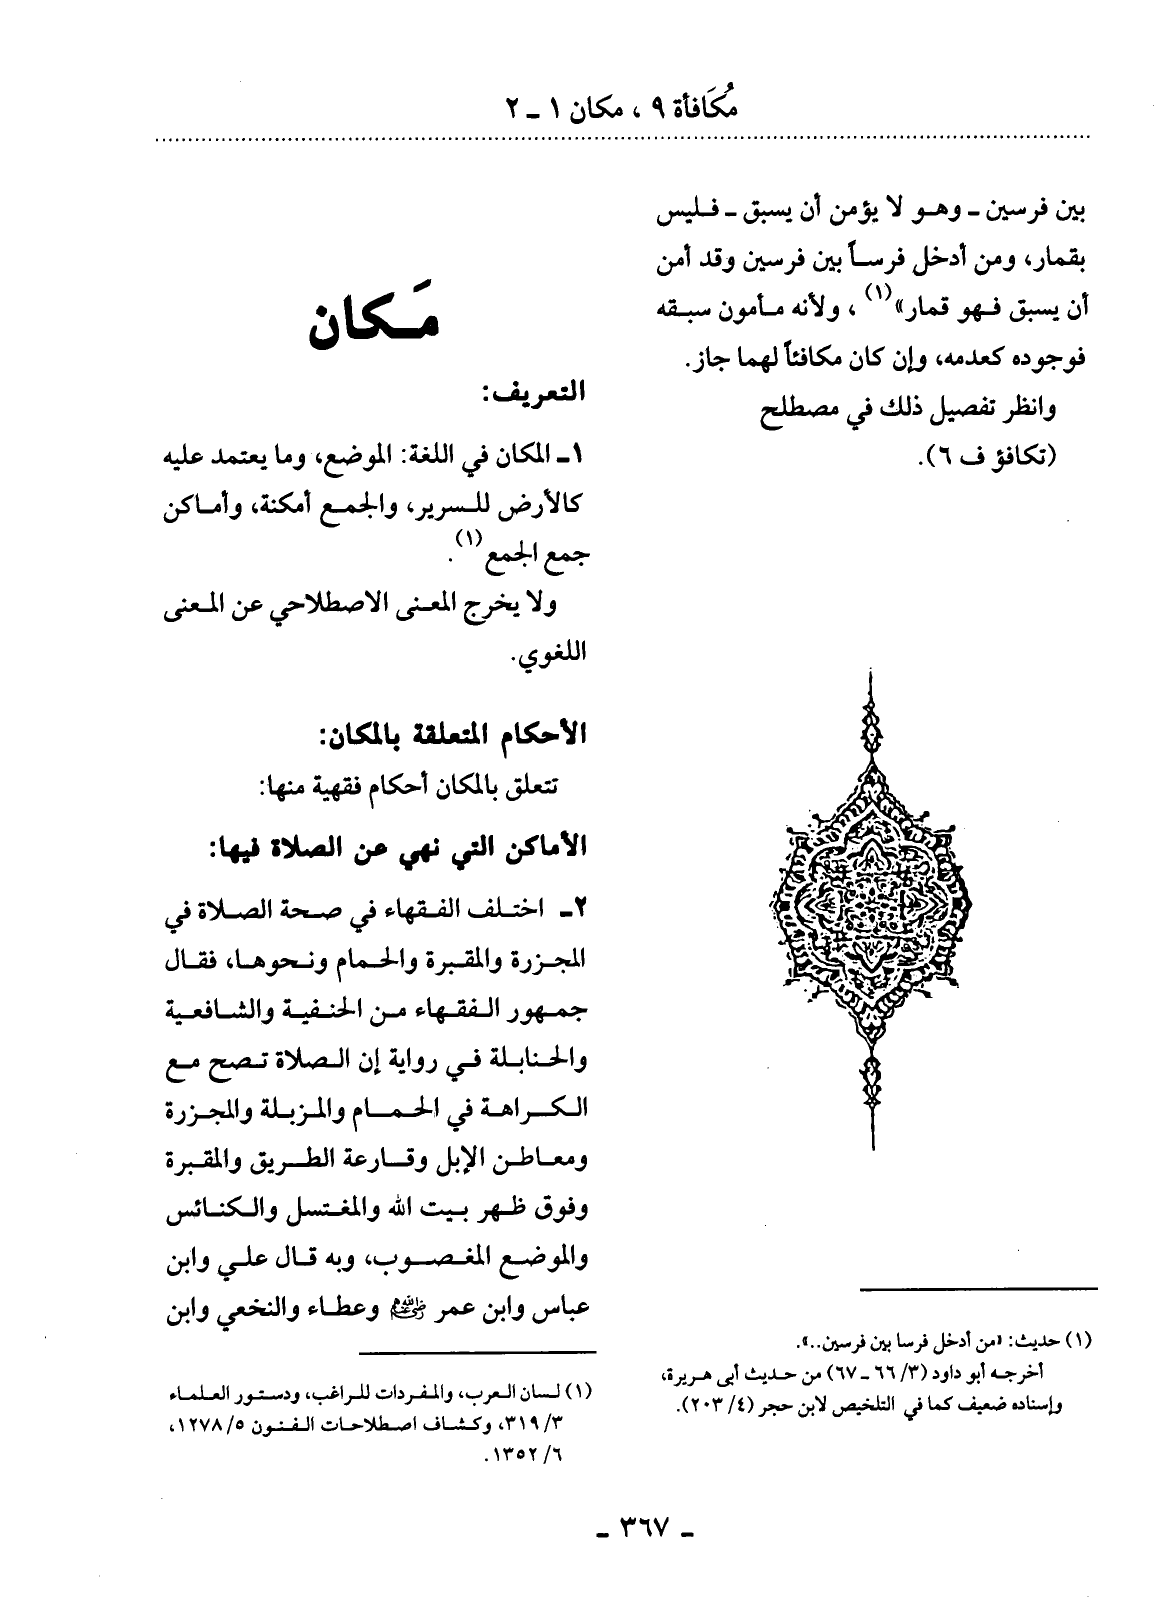 مُكَافأة ٩ ، مكان ١ ـ ٢
بين فرسين ـ وهو لا يؤمن أن يسبق ـ فليس
بقمار، ومن أدخل فرساً بين فرسين وقد أمن
أن يسبق فهو قمار»(١) ، ولأنه مأمون سبقه
فوجوده كعدمه، وإن كان مكافئاً لهما جاز.
وانظر تفصيل ذلك في مصطلح
(تكافؤ ف ٦).
(١) حديث: «من أدخل فرسا بين فرسين..».
أخرجه أبو داود (٣/ ٦٦ ـ ٦٧) من حديث أبي هريرة،
وإسناده ضعيف كما في التلخيص لابن حجر (٤/ ٢٠٣).
مَـكان
التعريف:
١ـ المكان في اللغة: الموضع، وما يعتمد عليه
كالأرض للسرير، والجمع أمكنة، وأماكن
جمع الجمع(١).
ولا يخرج المعنى الاصطلاحي عن المعنى
اللغوي.
الأحكام المتعلقة بالمكان:
تتعلق بالمكان أحكام فقهية منها:
الأماكن التي نهي عن الصلاة فيها:
٢ـ اختلف الفقهاء في صحة الصلاة في
المجزرة والمقبرة والحمام ونحوها، فقال
جمهور الفقهاء من الحنفية والشافعية
والحنابلة في رواية إن الصلاة تصح مع
الكراهة في الحمام والمزبلة والمجزرة
ومعاطن الإبل وقارعة الطريق والمقبرة
وفوق ظهر بيت الله والمغتسل والكنائس
والموضع المغصوب، وبه قال علي وابن
عباس وابن عمر ﷺ وعطاء والنخعي وابن
(١) لسان العرب، والمفردات للراغب، ودستور العلماء
٣/ ٣١٩، وكشاف اصطلاحات الفنون ٥/ ١٢٧٨،
٦/ ١٣٥٢.
ـ ٣٦٧ ـ